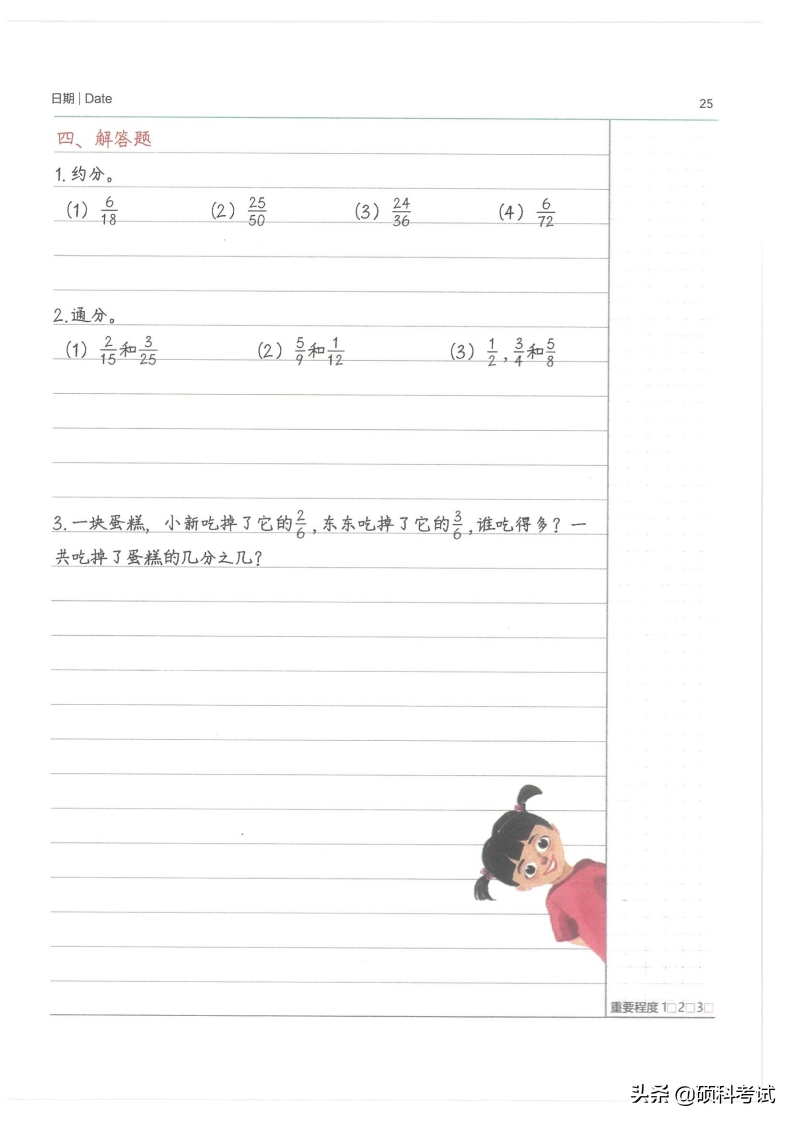 日期 | Date
25
四、解答题
1.约分。
(1) 6/18 (2) 25/50 (3) 24/36 (4) 6/72
2.通分。
(1) 2/15和3/25 (2) 5/9和1/12 (3) 1/2,3/4和5/8
3.一块蛋糕,小新吃掉了它的2/6,东东吃掉了它的3/6,谁吃得多?一
共吃掉了蛋糕的几分之几?
重要程度 1□ 2□ 3□
头条 @硕科考试